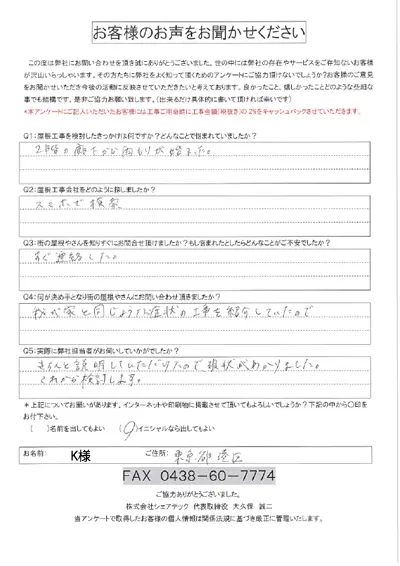 お客様のお声をお聞かせください
この度は弊社にお問い合わせを頂き誠にありがとうございました。世の中には弊社の存在やサービスをご存知ないお客様
が沢山いらっしゃいます。その方たちに弊社をよく知って頂くためのアンケートにご協力頂けないでしょうか?お客様のご意見
をお聞かせいただき今後の活動に反映させていただきたいと考えております。良かったこと、嬉しかったことどのような些細な
事でも結構です。是非ご協力お願い致します。(出来るだけ具体的に書いて頂ければ幸いです)
*本アンケートにご記入いただいたお客様には工事ご用命時に工事金額(税抜き)の2%をキャッシュバックさせていただきます。
Q1:屋根工事を検討したきっかけは何ですか?どんなことで悩まれていましたか?
2階の廊下から雨もりが始まった。
Q2:屋根工事会社をどのように探しましたか?
スマホで検索
Q3:街の屋根やさんを知りすぐにお問合せ頂けましたか?もし悩まれたとしたらどんなことがご不安でしたか?
すぐ連絡した。
Q4:何が決め手となり街の屋根やさんにお問い合わせ頂きましたか?
我が家と同じような症状の工事を紹介していたので
Q5:実際に弊社担当者がお伺いしていかがでしたか?
きちんと説明していただけたので現状がわかりました。
これから検討します。
*上記についてお願いがあります。インターネットや印刷物に掲載させて頂いてもよろしいでしょうか?下記の中から〇印を
お付下さい。
( )名前を出してもよい (〇)イニシャルなら出してもよい
お名前: K様 ご住所: 東京都港区
FAX 0438-60-7774
ご協力ありがとうございました。
株式会社シェアテック 代表取締役 大久保 誠二
当アンケートで取得したお客様の個人情報は関係法規に基づき厳正に管理いたします。